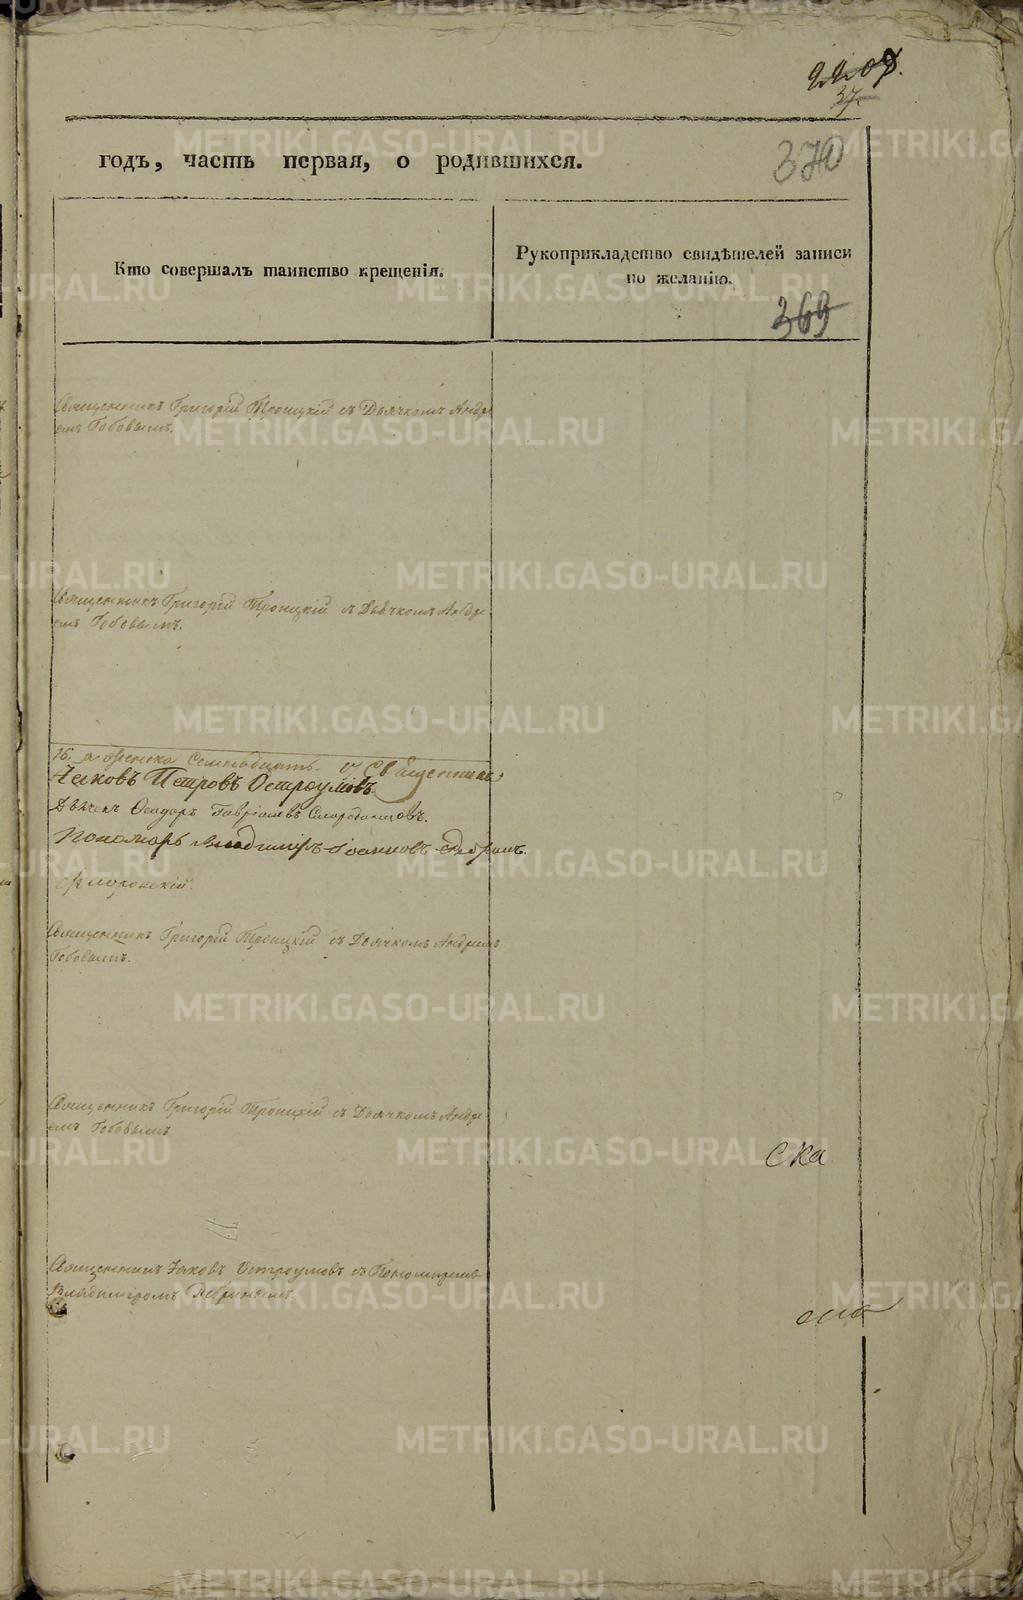 2207.
37
годъ, часть первая, о родившихся.
370
Кто совершалъ таинство крещенія.
Рукоприкладство свидѣтелей записи
по желанію.
369
Священникъ Григорій Троицкій съ Дьячкомъ Андре
емъ Бобовымъ.
Священникъ Григорій Троицкій съ Дьячкомъ Андре
емъ Бобовымъ.
16, а женска семнадцать. 17 Священникъ
Іаковъ Петровъ Остроумовъ.
Дьячекъ Ѳеодоръ Гавріиловъ
Пономарь Владимиръ Іоанновъ
Священникъ Григорій Троицкій съ Дьячкомъ Андреемъ
Бобовымъ.
Священникъ Григорій Троицкій съ Дьячкомъ Андре
емъ Бобовымъ
ска
Священникъ Іаковъ Остроумовъ съ Пономаремъ
Владимиромъ
METRIKI.GASO-URAL.RU